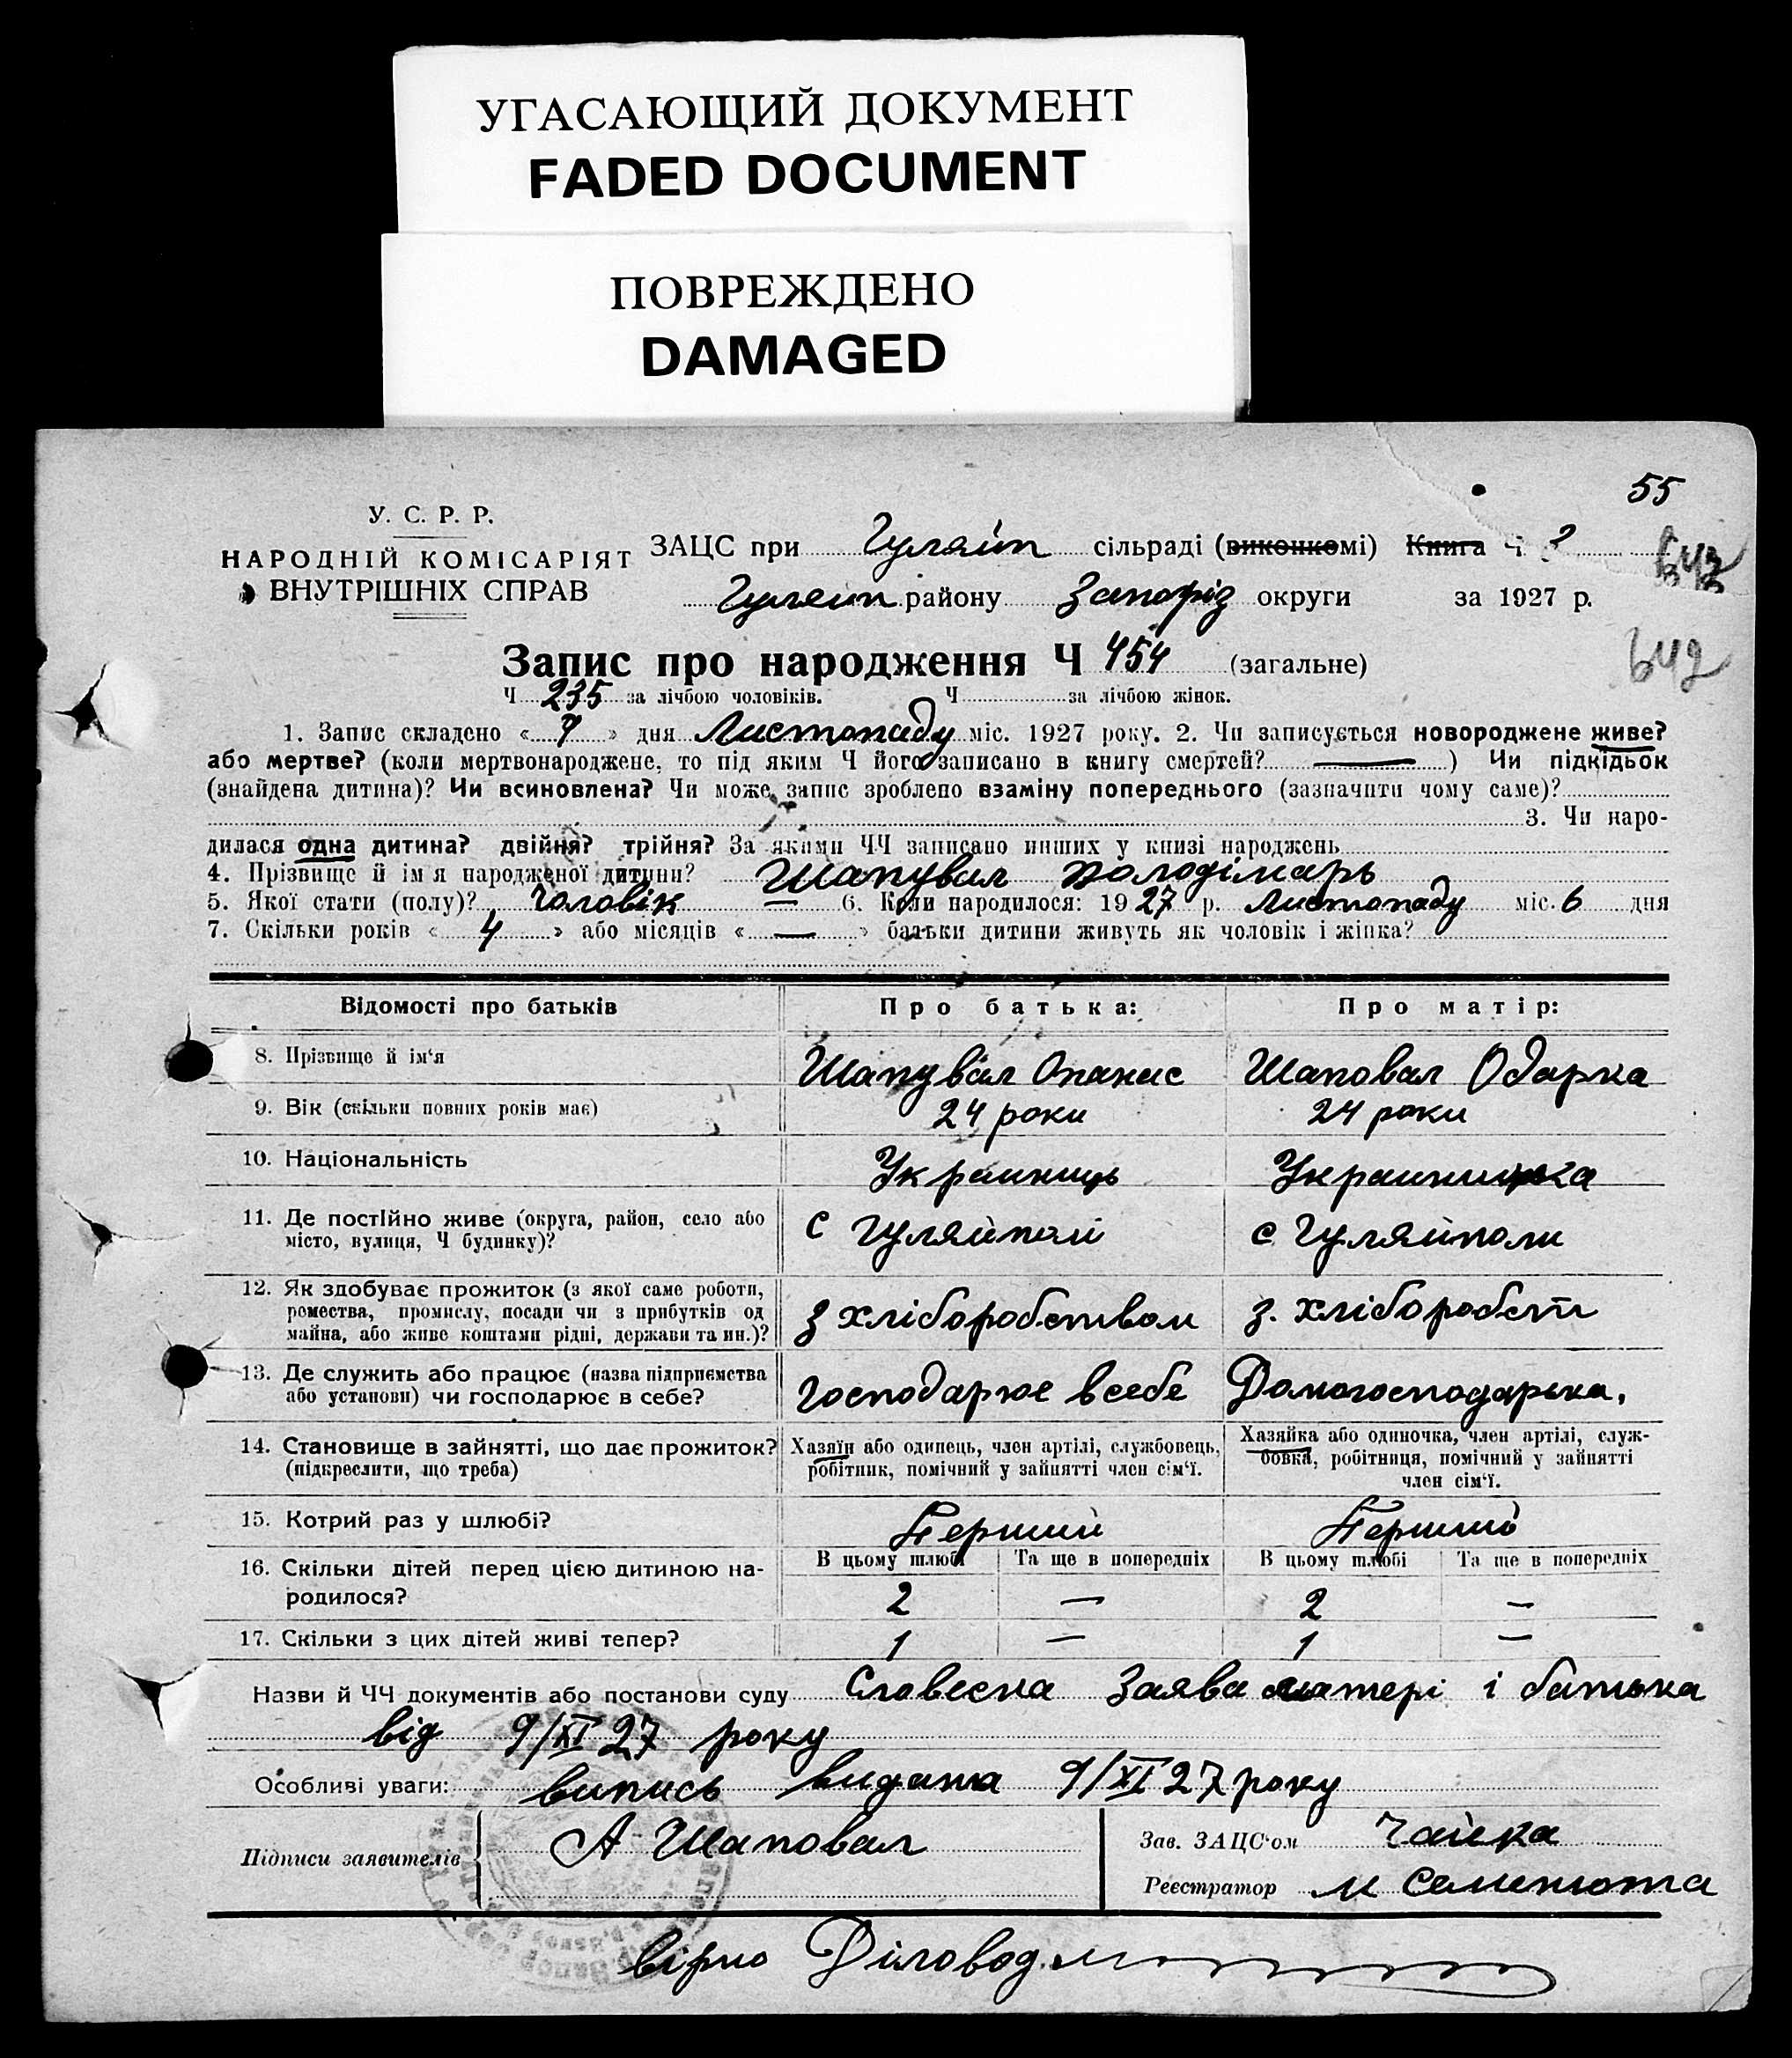 УГАСАЮЩИЙ ДОКУМЕНТ
FADED DOCUMENT
ПОВРЕЖДЕНО
DAMAGED
55
У. С. Р. Р.
НАРОДНІЙ КОМІСАРІЯТ
ВНУТРІШНІХ СПРАВ
ЗАЦС при Гуляйп сільраді (виконкомі) Книга Ч
Гуляйп району Запоріз округи за 1927 р.
642
Запис про народження Ч 454 (загальне)
Ч 235 за лічбою чоловіків. Ч за лічбою жінок.
1. Запис складено « 9 » дня Листопаду міс. 1927 року. 2. Чи записується новороджене живе?
або мертве? (коли мертвонароджене, то під яким Ч його записано в книгу смертей? — ) Чи підкідьок
(знайдена дитина)? Чи всиновлена? Чи може, запис зроблено взаміну попереднього (зазначити чому саме)?
3. Чи наро-
дилася одна дитина? двійня? трійня? За якими ЧЧ записано инших у книзі народжень
4. Прізвище й ім я народженої дитини? Шапувал Володімарь
5. Якої стати (полу)? Чоловік — 6. Коли народилося: 1927 р. Листопаду міс. 6 дня
7. Скільки років « 4 » або місяців « — » батьки дитини живуть як чоловік і жінка?
Відомості про батьків Про батька: Про матір:
8. Прізвище й ім‘я Шапувал Опанас Шаповал Одарка
9. Вік (скільки повних років має) 24 роки 24 роки
10. Національність Украинець Украинка
11. Де постійно живе (округа, район, село або
місто, вулиця, Ч будинку)? с Гуляйполі с. Гуляйполи
12. Як здобуває прожиток (з якої саме роботи,
ремества, промислу, посади чи з прибутків од
майна, або живе коштами рідні, держави та ин.)? з хліборобством з. хліборобст
13. Де служить або працює (назва підприємства
або установи) чи господарює в себе? Господарює в себе Домогосподарька.
14. Становище в зайнятті, що дає прожиток?
(підкреслити, що треба)
Хазяїн або одинець, член артілі, службовець,
робітник, помічний у зайнятті член сім‘ї.
Хазяйка або одиночка, член артілі, служ-
бовка, робітниця, помічний у зайнятті
член сім‘ї.
15. Котрий раз у шлюбі? Перший Перший
16. Скільки дітей перед цією дитиною на-
родилося?
В цьому шлюбі Та ще в попередніх В цьому шлюбі Та ще в попередніх
2 — 2 —
17. Скільки з цих дітей живі тепер? 1 — 1 —
Назви й ЧЧ документів або постанови суду Словесна Заява матері і батька
від 9/XI 27 року
Особливі уваги: випись видана 9/XI 27 року
Підписи заявителів А Шаповал
Зав. ЗАЦС‘ом Чайка
Реєстратор М Семенюта
вірно Діловод